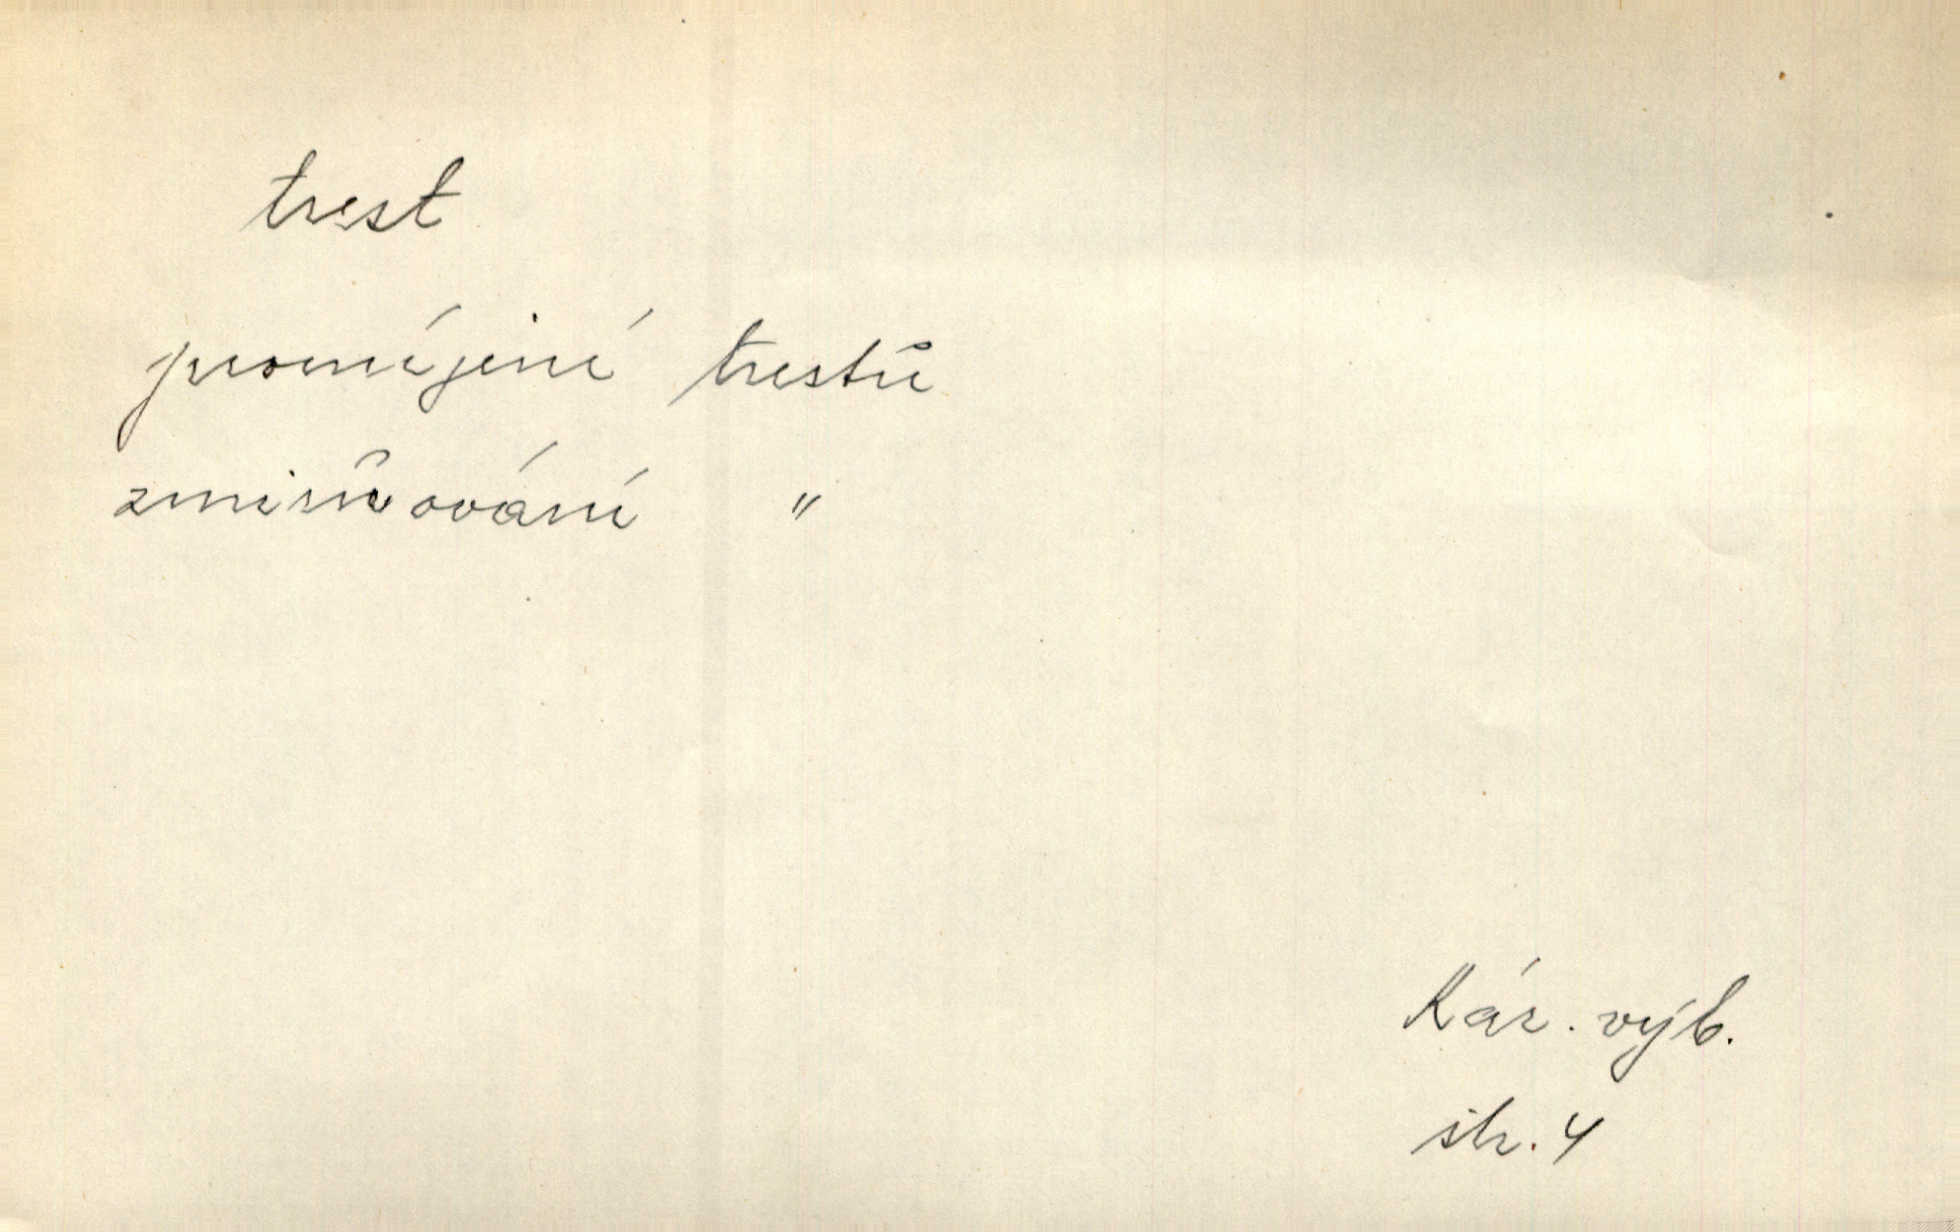 trest
promíjení trestů
zmirňování "
Kár. výb.
str. 4